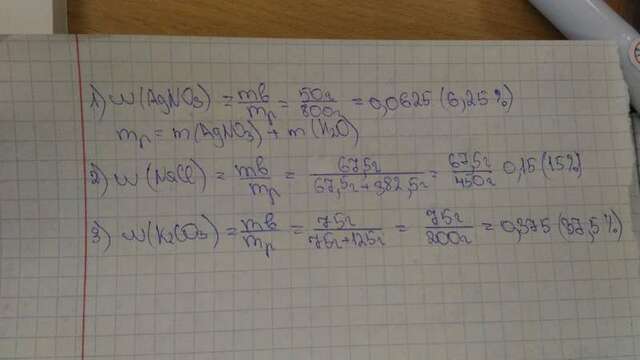 1) w(AgNO3) = mв/mр = 50г/800г = 0,0625 (6,25%)
mр = m(AgNO3) + m(H2O)
2) w(NaCl) = mв/mр = 67,5г/67,5г+382,5г = 67,5г/450г 0,15 (15%)
3) w(K2CO3) = mв/mр = 75г/75г+125г = 75г/200г = 0,375 (37,5%)